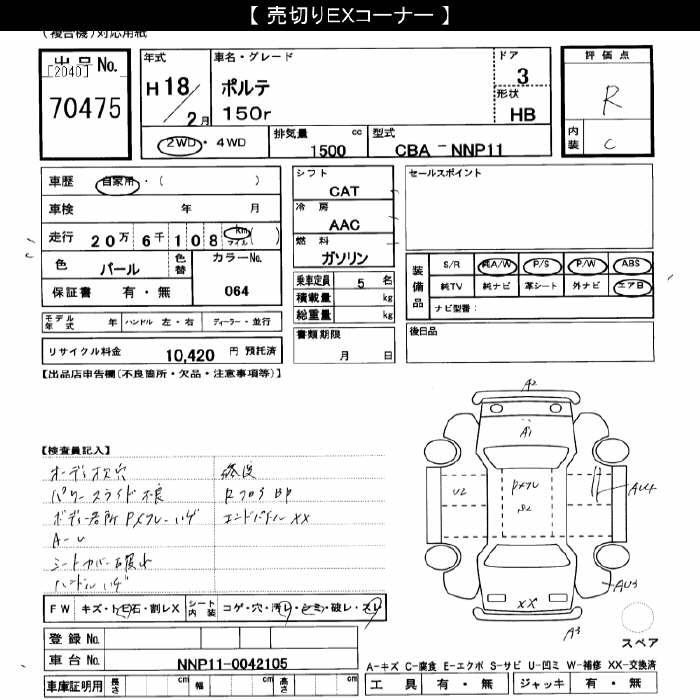 【 売切りEXコーナー 】
(複合機)対応用紙
出品No.
[2040]
70475
年式
H 18/2月
車名・グレード
ポルテ
150r
ドア
3
形状
HB
評価点
R
内装
C
2WD・4WD
排気量 cc
1500
型式
CBA - NNP11
車歴 自家用・( )
車検 年 月
走行 20万 6千 1 0 8 km マイル( )
色 パール
色替
カラーNo.
064
保証書 有・無
シフト
CAT
冷房
AAC
燃料
ガソリン
乗車定員 5 名
積載量 kg
総重量 kg
書類期限
月 日
セールスポイント
装備品
S/R 純A/W P/S P/W ABS
純TV 純ナビ 革シート 外ナビ エアB
ナビ型番:
後日品
モデル年式 年 ハンドル 左・右 ディーラー・並行
リサイクル料金 10,420 円 預託済
【出品店申告欄(不良箇所・欠品・注意事項等)】
【検査員記入】
オーディオ欠穴
パワースライド不良
A-U
シートカバー
ハンドル
修復
Rフロア
エンドパネル XX
A2
A1
U2
AU4
AU3
XX
A3
スペア
FW キズ・トビ石・割レX シート内装 コゲ・穴・汚レ・シミ・破レ・スレ
登録No.
車台No. NNP11-0042105
車庫証明用 長さ cm 幅 cm 高さ cm
A-キズ C-腐食 E-エクボ S-サビ U-凹ミ W-補修 XX-交換済
工具 有・無 ジャッキ 有・無